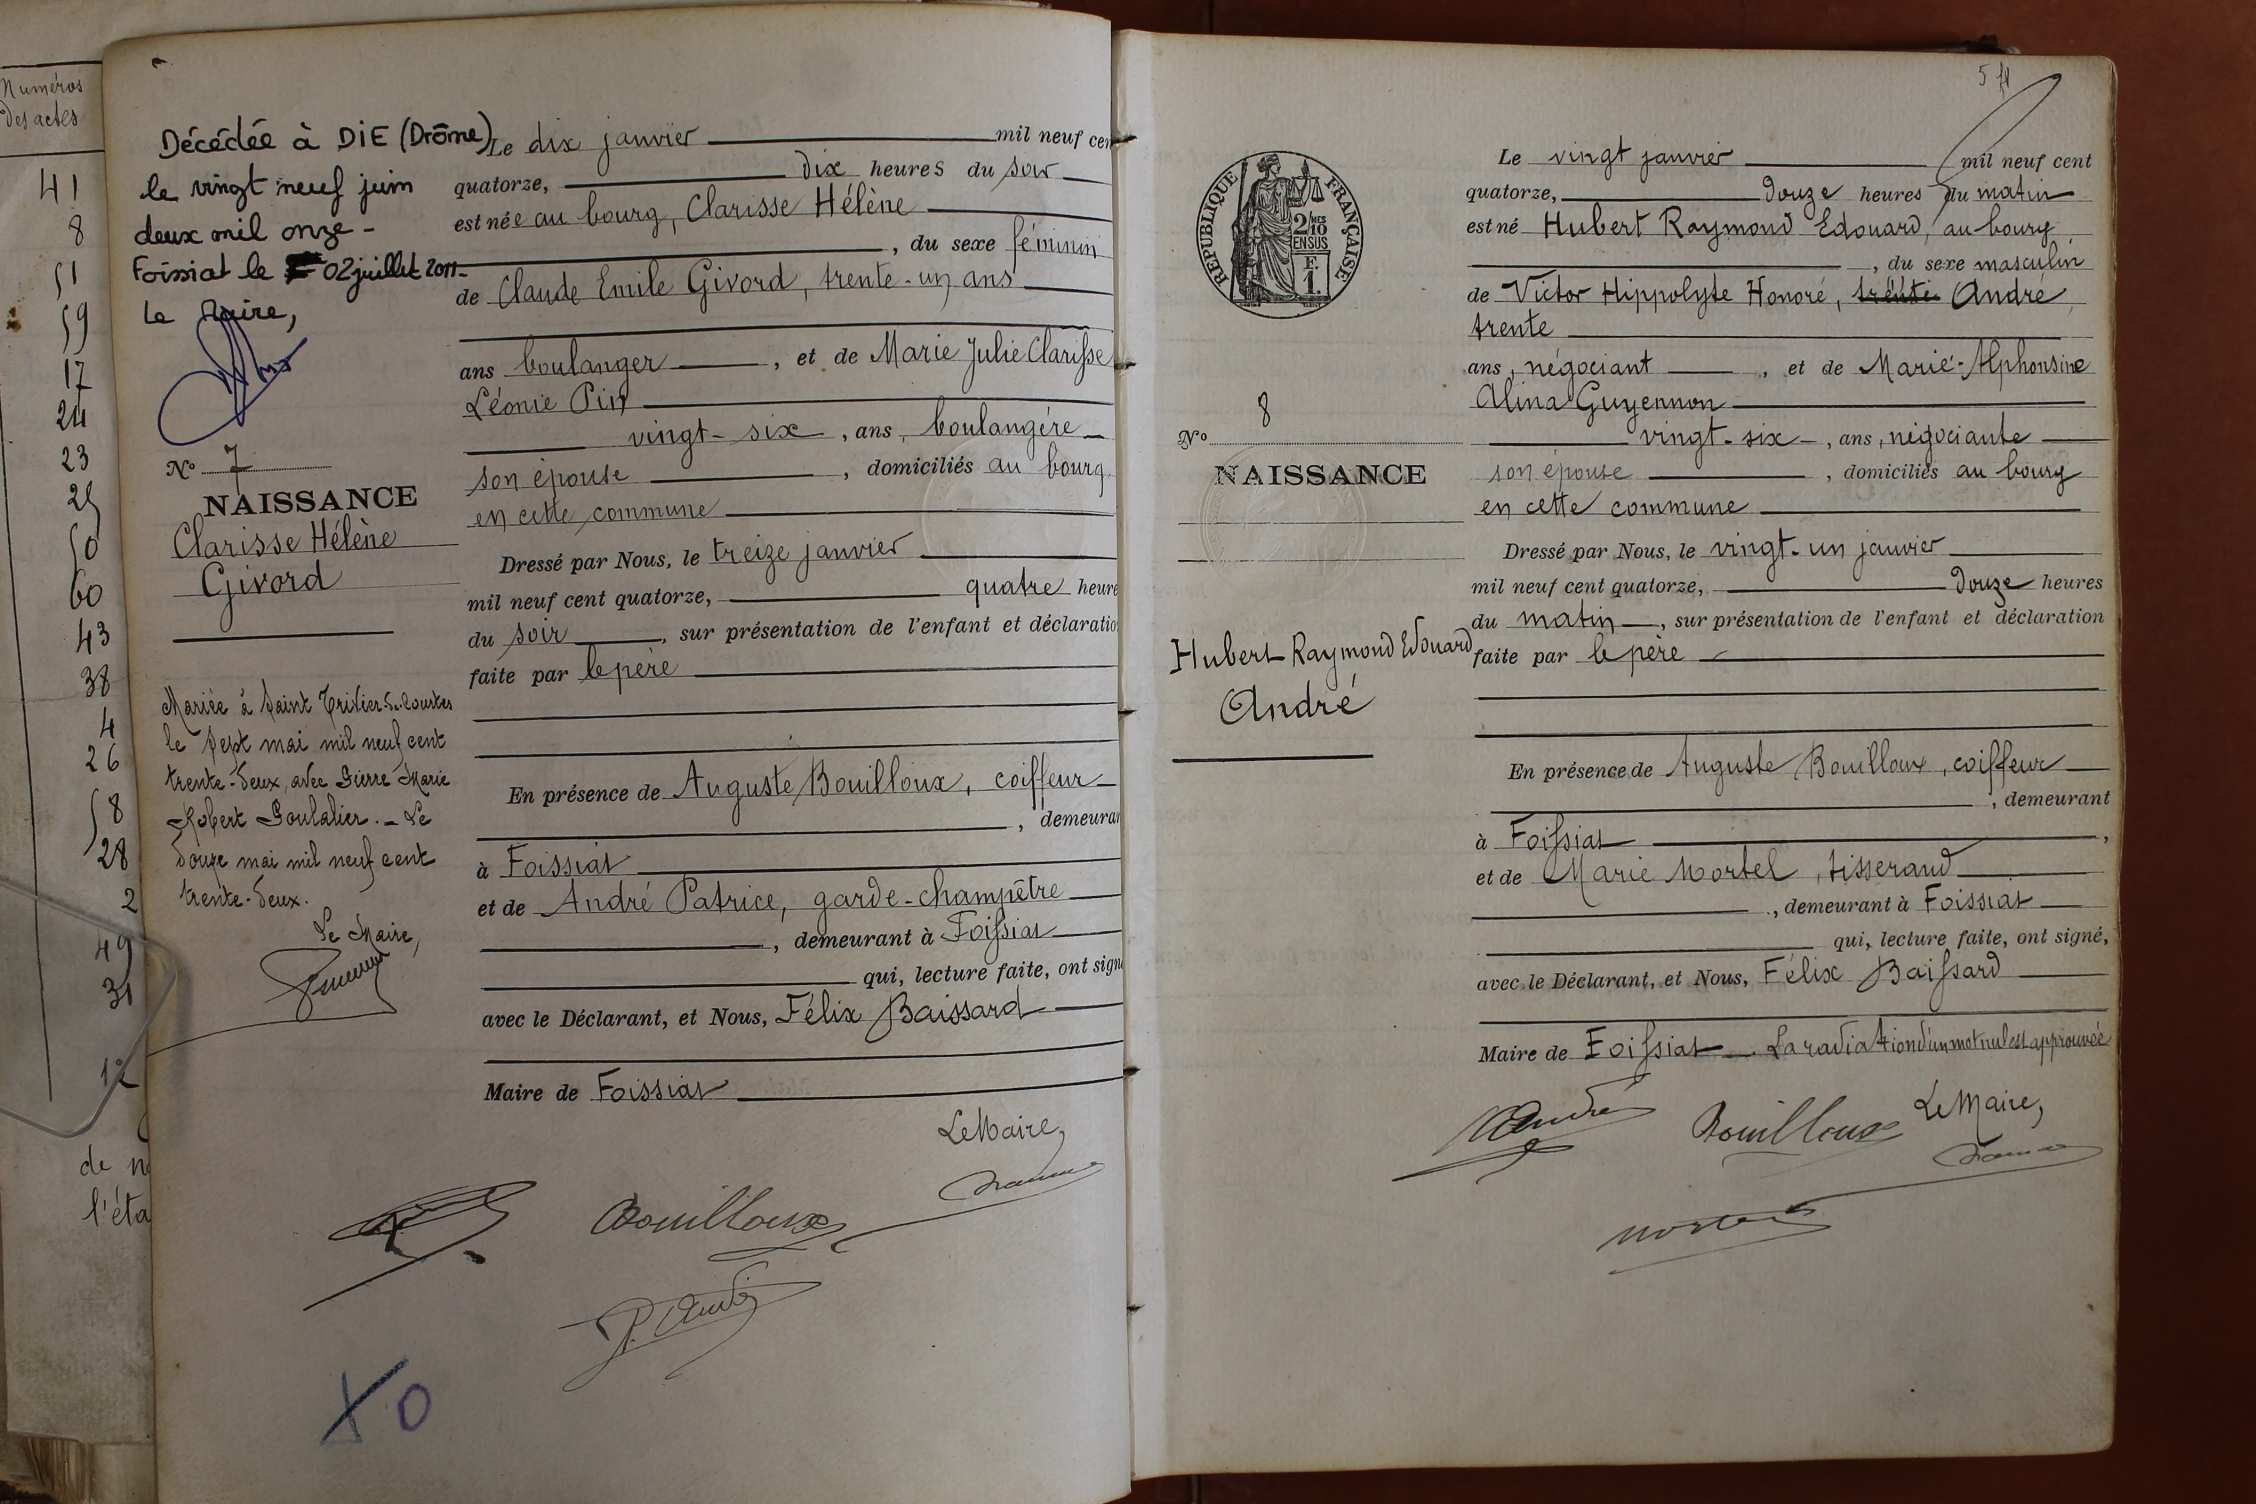 Numéros
des actes
41
8
51
59
17
24
23
25
50
60
43
38
4
26
58
28
2
49
31
12
de n
l'éta
Décédée à DIE (Drôme)
le vingt neuf juin
deux mil onze -
Foissiat le 02 juillet 2011-
Le Maire,
No 7
NAISSANCE
Clarisse Hélène
Givord
Mariée à Saint Trivier-de-Courtes
le sept mai mil neuf cent
trente-deux, avec Pierre Marie
Robert Goulalier. - Le
douze mai mil neuf cent
trente-deux.
Le Maire,
Le dix janvier mil neuf cen
quatorze, dix heures du soir
est née au bourg, Clarisse Hélène
, du sexe féminin
de Claude Emile Givord, trente-un ans
ans boulanger , et de Marie Julie Clarisse
Léonie Pin
vingt-six , ans, boulangère
son épouse , domiciliés au bourg
en cette commune
Dressé par Nous, le treize janvier
mil neuf cent quatorze, quatre heure
du soir , sur présentation de l'enfant et déclaratio
faite par le père
En présence de Auguste Bouilloux, coiffeur
, demeuran
à Foissiat
et de André Patrice, garde-champêtre
, demeurant à Foissiat
qui, lecture faite, ont signé
avec le Déclarant, et Nous, Félix Baissard
Maire de Foissiat
Le Maire,
Bouilloux
P. André
X O
5
RÉPUBLIQUE FRANÇAISE
2/10MES
EN SUS
F.
1.
No 8
NAISSANCE
Hubert Raymond Edouard
André
Le vingt janvier mil neuf cent
quatorze, douze heures du matin
est né Hubert Raymond Edouard, au bourg
, du sexe masculin
de Victor Hippolyte Honoré, trente André,
trente
ans, négociant , et de Marie-Alphonsine
Alina Guyennon
vingt-six , ans, négociante
son épouse , domiciliés au bourg
en cette commune
Dressé par Nous, le vingt-un janvier
mil neuf cent quatorze, douze heures
du matin , sur présentation de l'enfant et déclaration
faite par le père
En présence de Auguste Bouilloux, coiffeur
, demeurant
à Foissiat ,
et de Marie Mortel, tisserand
, demeurant à Foissiat
qui, lecture faite, ont signé,
avec le Déclarant, et Nous, Félix Baissard
Maire de Foissiat La radiation d'un mot nul est approuvée
Le Maire,
André
Bouilloux
Mortel